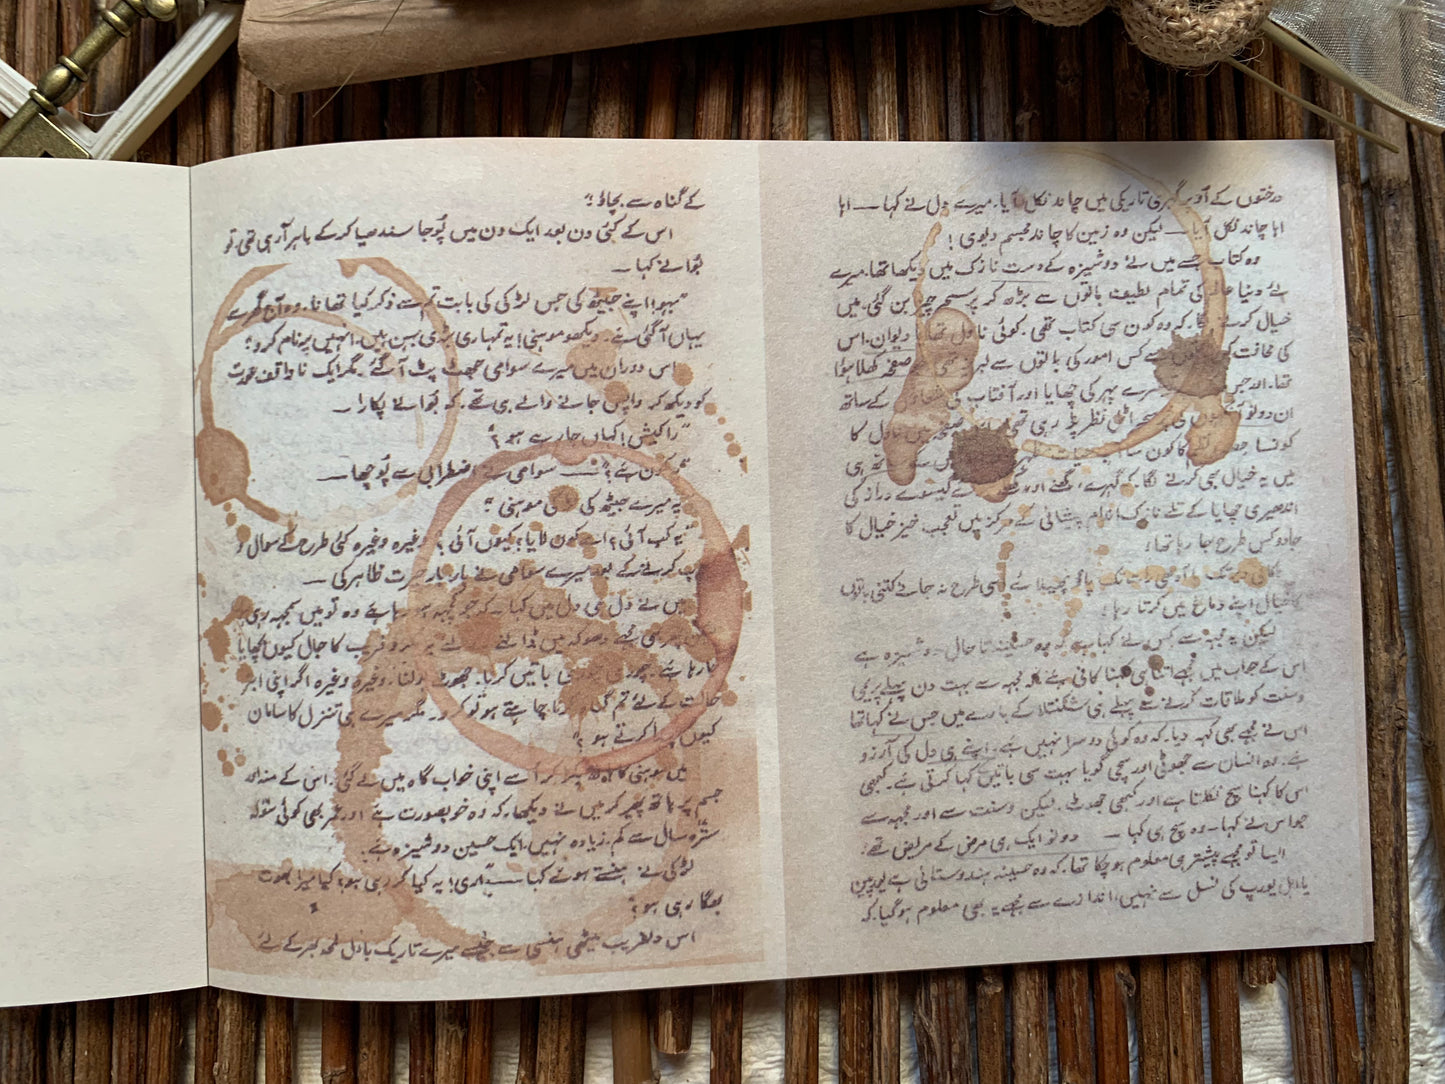 درختوں کے اُوپر گہری تاریکی میں چاند نکل آیا۔ میرے دل نے کہا ــــ اہا
اہا چاند نکل آیا ــــ لیکن وہ زمین کا چاند مجسم دیوی!
وہ کتاب جسے میں نے دوشیزہ کے دست نازک میں دیکھا تھا۔ میرے
لئے دنیا کی تمام لطیف باتوں سے بڑھ کر پر سحر چیز بن گئی۔ میں
خیال کرنے لگا۔ کہ وہ کون سی کتاب تھی۔ کوئی ناول تھا یا دیوان۔ اس
کی کس امور کی باتوں سے صفحہ کھلا ہوُا
تھا۔ اور پہر کی چھایا اور آفتاب کی کے ساتھ
ان دونو نظر پڑ رہی تھی ناول کا
کونسا کون سا
میں یہ خیال بھی کرنے لگا۔ کہ گہرے، گھنے اور گیسوئے دراز کی
اندھیری چھایا کے تلے نازک اندام پیشانی کے مرکز میں تعجب خیز خیال کا
جادو کس طرح جا رہا تھا؟
پاؤں پھیلائے اسی طرح نہ جانے کتنی باتوں
کا خیال اپنے دماغ میں کرتا رہا!
لیکن یہ مجھ سے کس نے کہا ہے۔ کہ وہ حسینہ تا حال دوشیزہ ہے
اس کے جواب میں مجھے اتنا ہی کہنا کافی ہے کہ مجھ سے بہت دن پہلے پریمی
وسنت کو ملاقات کرنے سے پہلے ہی شکنتلا کے بارے میں جس نے کہا تھا
اس نے مجھے بھی کہہ دیا۔ کہ وہ کوئی دوسرا نہیں ہے۔ اپنے ہی دل کی آرزو
ہے۔ وہ انسان سے جھوٹی اور سچی گویا بہت سی باتیں کہا کرتی ہے۔ کبھی
اس کا کہنا سچ نکلتا ہے اور کبھی جھوٹ۔ لیکن وسنت سے اور مجھ سے
جو اس نے کہا۔ وہ سچ ہی کہا ــــ دونو ایک ہی مرض کے مریض تھے!
ایسا تو مجھے پیشتر ہی معلوم ہو چکا تھا۔ کہ وہ حسینہ ہندوستانی ہے یورپین
یا اہل یورپ کی نسل سے نہیں، اندازے سے مجھے یہ بھی معلوم ہو گیا۔ کہ
کے گناہ سے بچاؤ؟"
اس کے کئی دن بعد ایک دن میں پُوجا سندھیا کر کے باہر آ رہی تھی۔ تو
بُوا نے کہا ــــ
"بہو! اپنے جیٹھ کی جس لڑکی کی بات تم سے ذکر کیا تھا نا۔ وہ آج گھر سے
یہاں آ گئی ہے۔ دیکھو موہنی! یہ تمہاری بڑی بہن ہیں۔ انہیں پرنام کرو؟
اس دوران میں میرے سوامی جھٹ پٹ آ گئے۔ مگر ایک ناواقف عورت
کو دیکھ کر واپس جانے والے ہی تھے۔ کہ بُوا نے پکارا ــــ
"راکیش! کہاں جا رہے ہو؟"
کون ہے؟" ــــ سوامی نے اضطرابی سے پُوچھا ــــ
"یہ میرے جیٹھ کی موہنی؟"
"یہ کب آئی؟ اسے کون لایا؟ کیوں آئی؟ وغیرہ وغیرہ کئی طرح کے سوال و
کرنے کے بعد میرے سوامی نے بار بار حیرت ظاہر کی ــــ
میں نے دل ہی دل میں کہا۔ کہ جو کچھ ہو رہا ہے وہ تو میں سمجھ رہی
پھر بھی مجھے دھوکہ میں ڈالنے کے لئے یہ مکر و فریب کا جال کیوں بچھایا
جا رہا ہے۔ چوری چوری باتیں کرنا۔ جھوٹ بولنا۔ وغیرہ وغیرہ اگر اپنی ابتر
حالت کے لئے تم چاہتے ہو تو کرو۔ مگر میرے ہی تنزل کا سامان
کیوں پیدا کرتے ہو؟"
میں موہنی کا ہاتھ پکڑ کر اُسے اپنی خواب گاہ میں لے گئی۔ اس کے منہ اور
جسم پر ہاتھ پھیر کر میں نے دیکھا۔ کہ وہ خوبصورت ہے اور عمر بھی کوئی سولہ
سترّہ سال سے کم۔ زیادہ نہیں۔ ایک حسین دوشیزہ ہے۔
لڑکی نے ہنستے ہوئے کہا ــــ یہ کیا کر رہی ہو؟ کیا میرا بھوت
بھگا رہی ہو؟"
اس دلفریب میٹھی ہنسی سے جیسے میرے تاریک بادل لمحہ بھر کے لئے